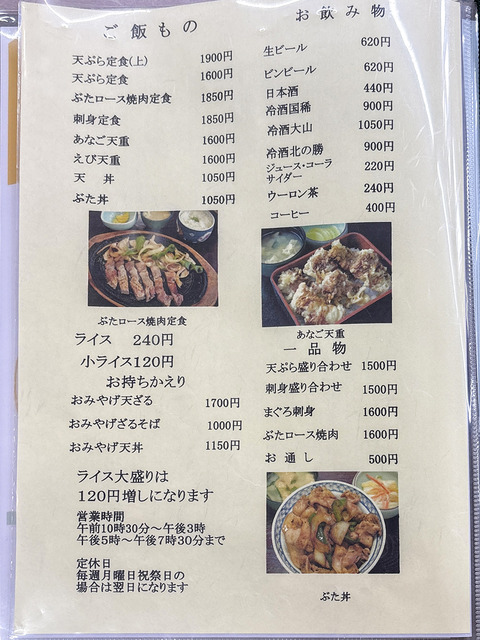 ご飯もの
天ぷら定食(上) 1900円
天ぷら定食 1600円
ぶたロース焼肉定食 1850円
刺身定食 1850円
あなご天重 1600円
えび天重 1600円
天 丼 1050円
ぶた丼 1050円
ぶたロース焼肉定食
ライス 240円
小ライス120円
お持ちかえり
おみやげ天ざる 1700円
おみやげざるそば 1000円
おみやげ天丼 1150円
ライス大盛りは
120円増しになります
営業時間
午前10時30分～午後3時
午後5時～午後7時30分まで
定休日
毎週月曜日祝祭日の
場合は翌日になります
お飲み物
生ビール 620円
ビンビール 620円
日本酒 440円
冷酒国稀 900円
冷酒大山 1050円
冷酒北の勝 900円
ジュース・コーラ 220円
サイダー
ウーロン茶 240円
コーヒー 400円
あなご天重
一品物
天ぷら盛り合わせ 1500円
刺身盛り合わせ 1500円
まぐろ刺身 1600円
ぶたロース焼肉 1600円
お通し 500円
ぶた丼